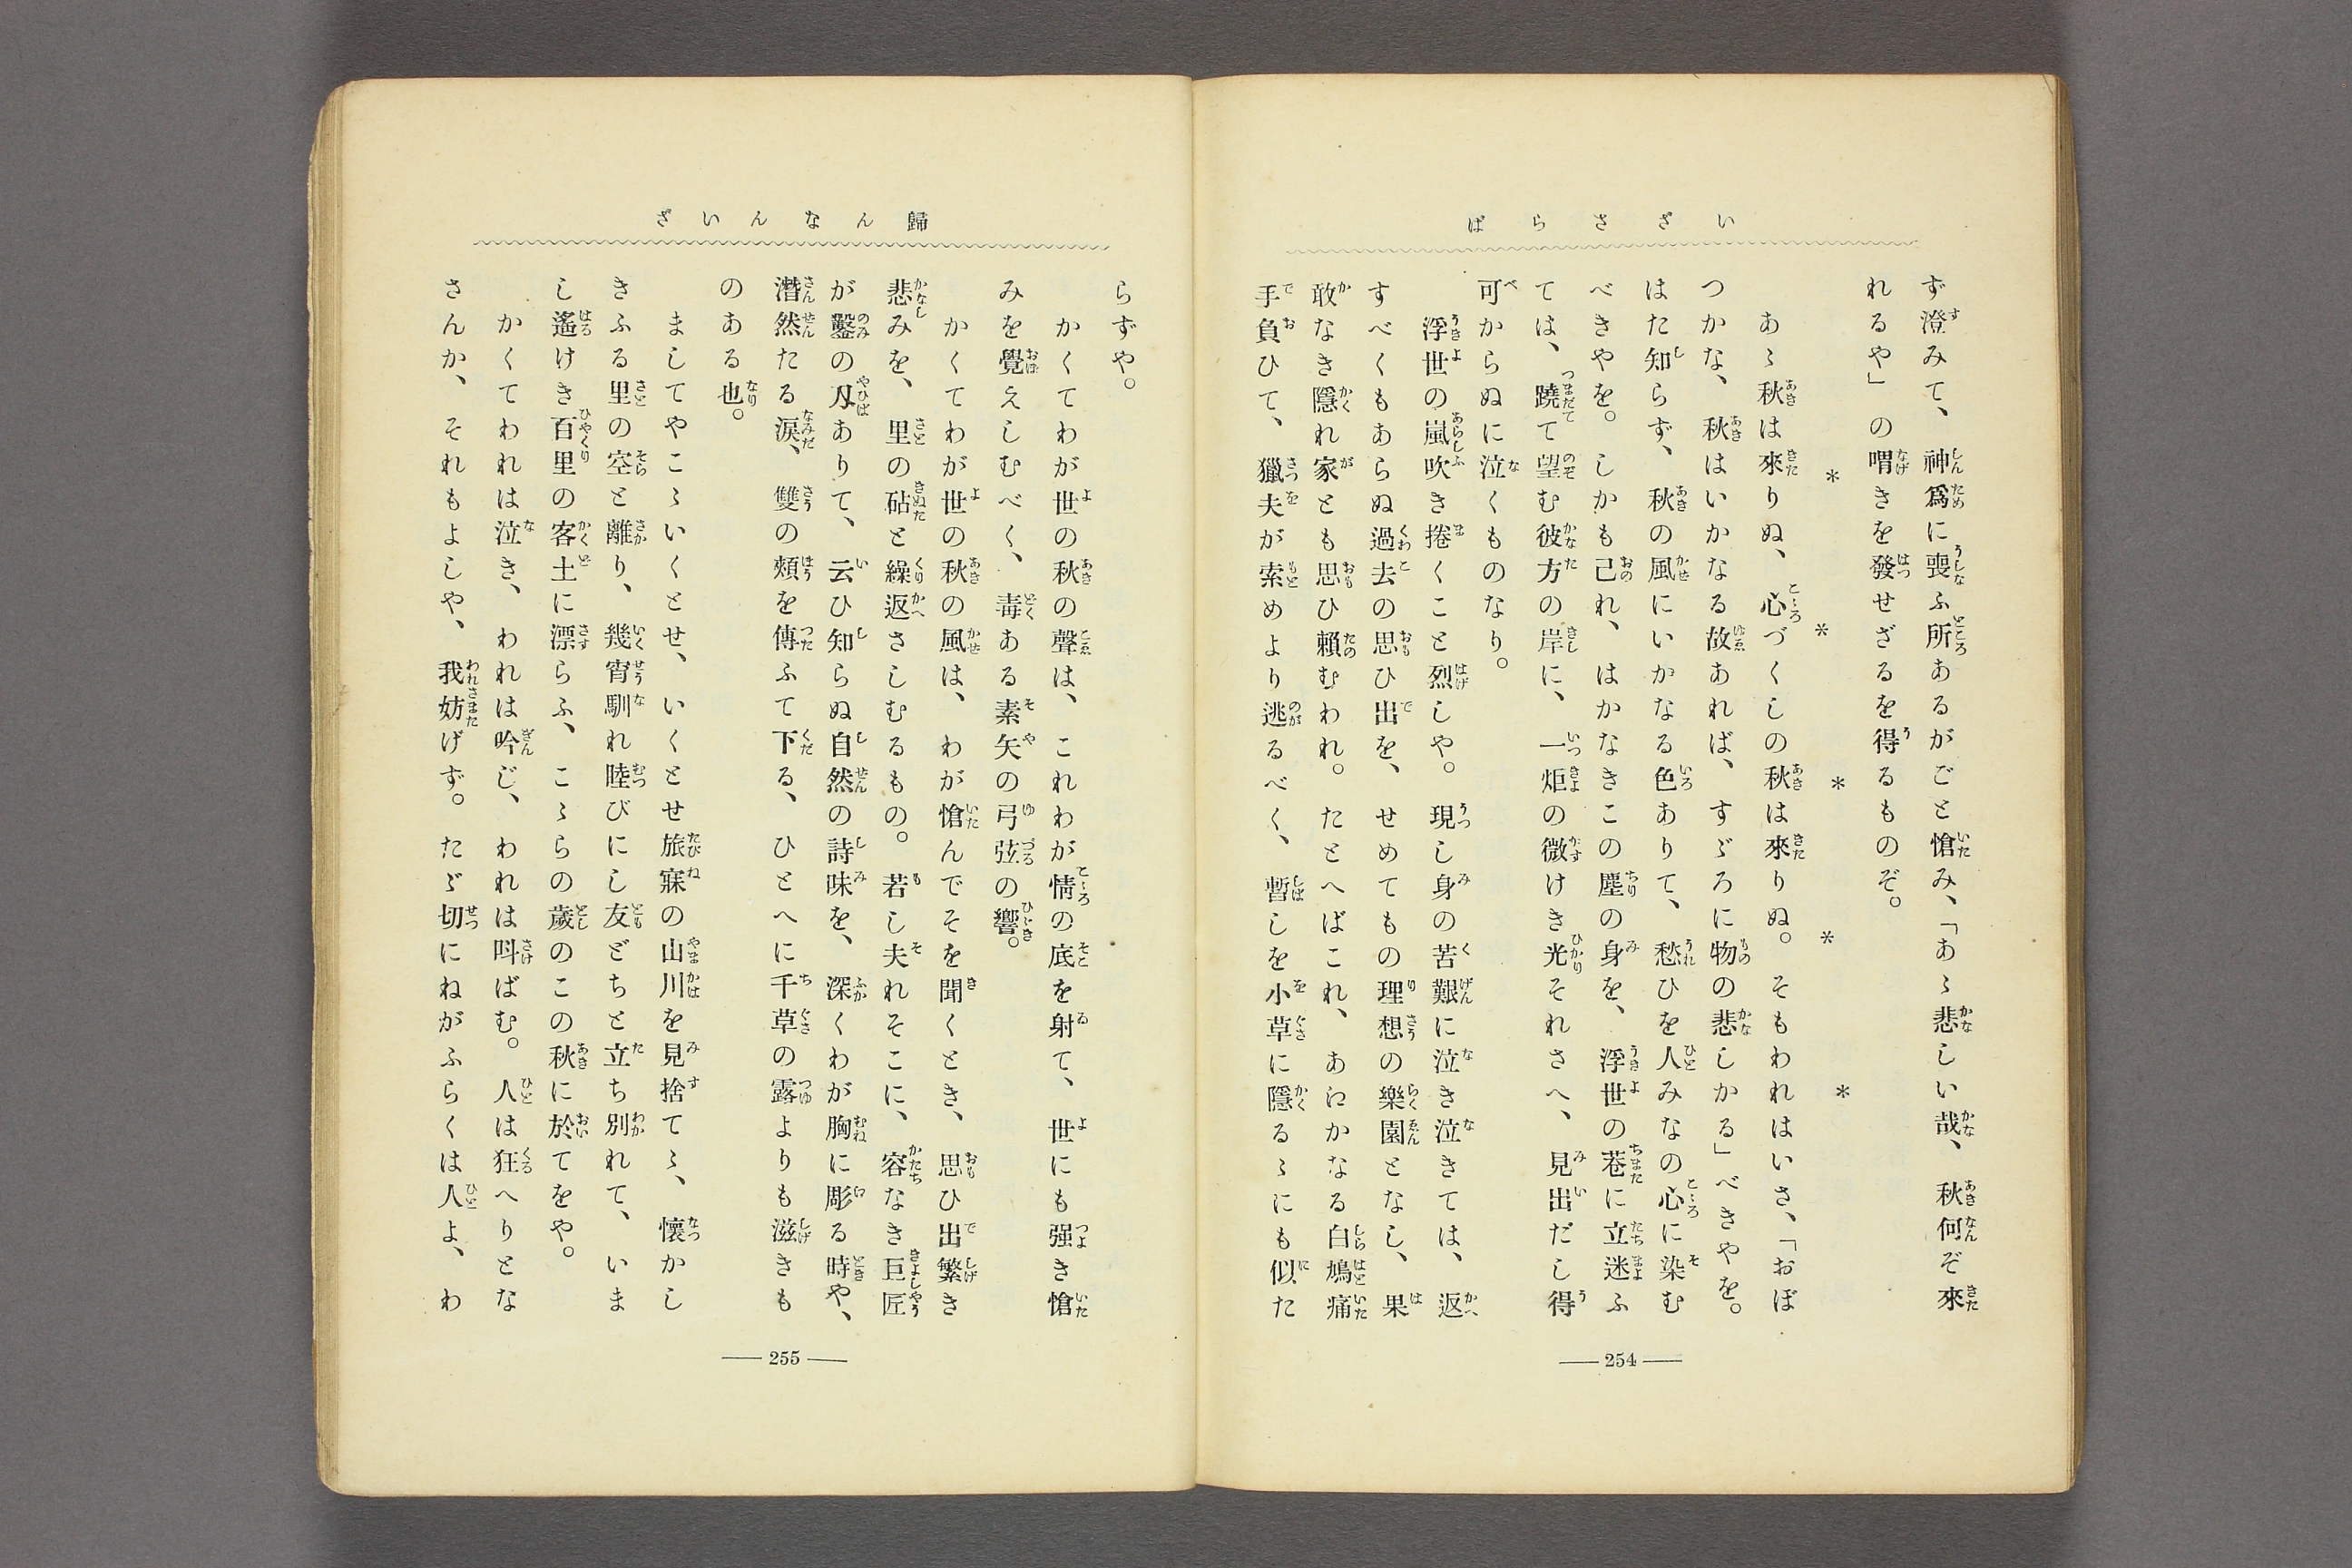 いざさらば
ず澄みて、神爲に喪ふ所あるがごと愴み、「あゝ悲しい哉、秋何ぞ來
れるや」の喟きを發せざるを得るものぞ。
＊　＊　＊　＊　＊
あゝ秋は來りぬ、心づくしの秋は來りぬ。そもわれはいさ、「おぼ
つかな、秋はいかなる故あれば、すゞろに物の悲しかる」べきやを。
はた知らず、秋の風にいかなる色ありて、愁ひを人みなの心に染む
べきやを。しかも己れ、はかなきこの塵の身を、浮世の巷に立迷ふ
ては、蹺て望む彼方の岸に、一炬の微けき光それさへ、見出だし得
可からぬに泣くものなり。
浮世の嵐吹き捲くこと烈しや。現し身の苦艱に泣き泣きては、返
すべくもあらぬ過去の思ひ出を、せめてもの理想の樂園となし、果
敢なき隱れ家とも思ひ賴むわれ。たとへばこれ、あはかなる白鳩痛
手負ひて、獵夫が索めより逃るべく、暫しを小草に隱るゝにも似た
254
歸なんいざ
らずや。
かくてわが世の秋の聲は、これわが情の底を射て、世にも强き愴
みを覺えしむべく、毒ある素矢の弓弦の響。
かくてわが世の秋の風は、わが愴んでそを聞くとき、思ひ出繁き
悲みを、里の砧と繰返さしむるもの。若し夫れそこに、容なき巨匠
が鑿の刄ありて、云ひ知らぬ自然の詩味を、深くわが胸に彫る時や、
潸然たる淚、雙の頰を傳ふて下る、ひとへに千草の露よりも滋きも
のある也。
ましてやこゝいくとせ、いくとせ旅寐の山川を見捨てゝ、懷かし
きふる里の空と離り、幾宵馴れ睦びにし友どちと立ち別れて、いま
し遙けき百里の客土に漂らふ、こゝらの歲のこの秋に於てをや。
かくてわれは泣き、われは吟じ、われは呌ばむ。人は狂へりとな
さんか、それもよしや、我妨げず。たゞ切にねがふらくは人よ、わ
255